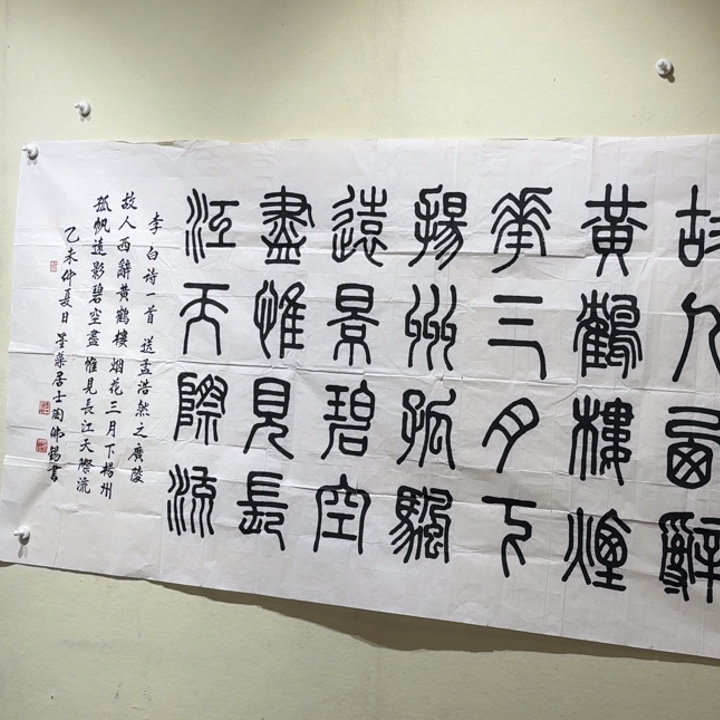 故人西辭
黃鶴樓煙
華三月下
揚州孤颿
遠景碧空
盡惟見長
江天際流
李白诗一首 送孟浩然之廣陵
故人西辭黄鶴樓 烟花三月下楊州
孤帆遠影碧空盡 惟見長江天際流
乙未仲夏日 居士陶 錫書